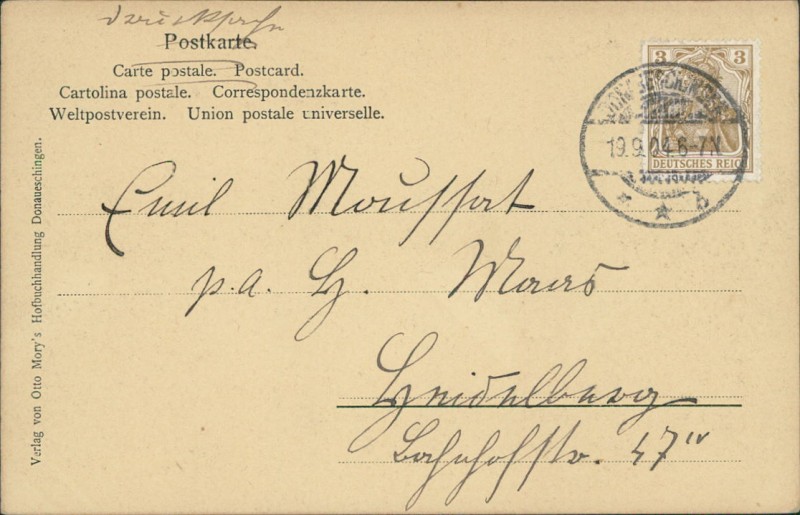 Drucksache
Postkarte.
Carte postale. Postcard.
Cartolina postale. Correspondenzkarte.
Weltpostverein. Union postale universelle.
3 3
DEUTSCHES REICH
19.9.04.6-7N
* ★ b
Emil
p. a. H. Maas
Heidelberg
Bahnhofstr. 47 IV
Verlag von Otto Mory's Hofbuchhandlung Donaueschingen.